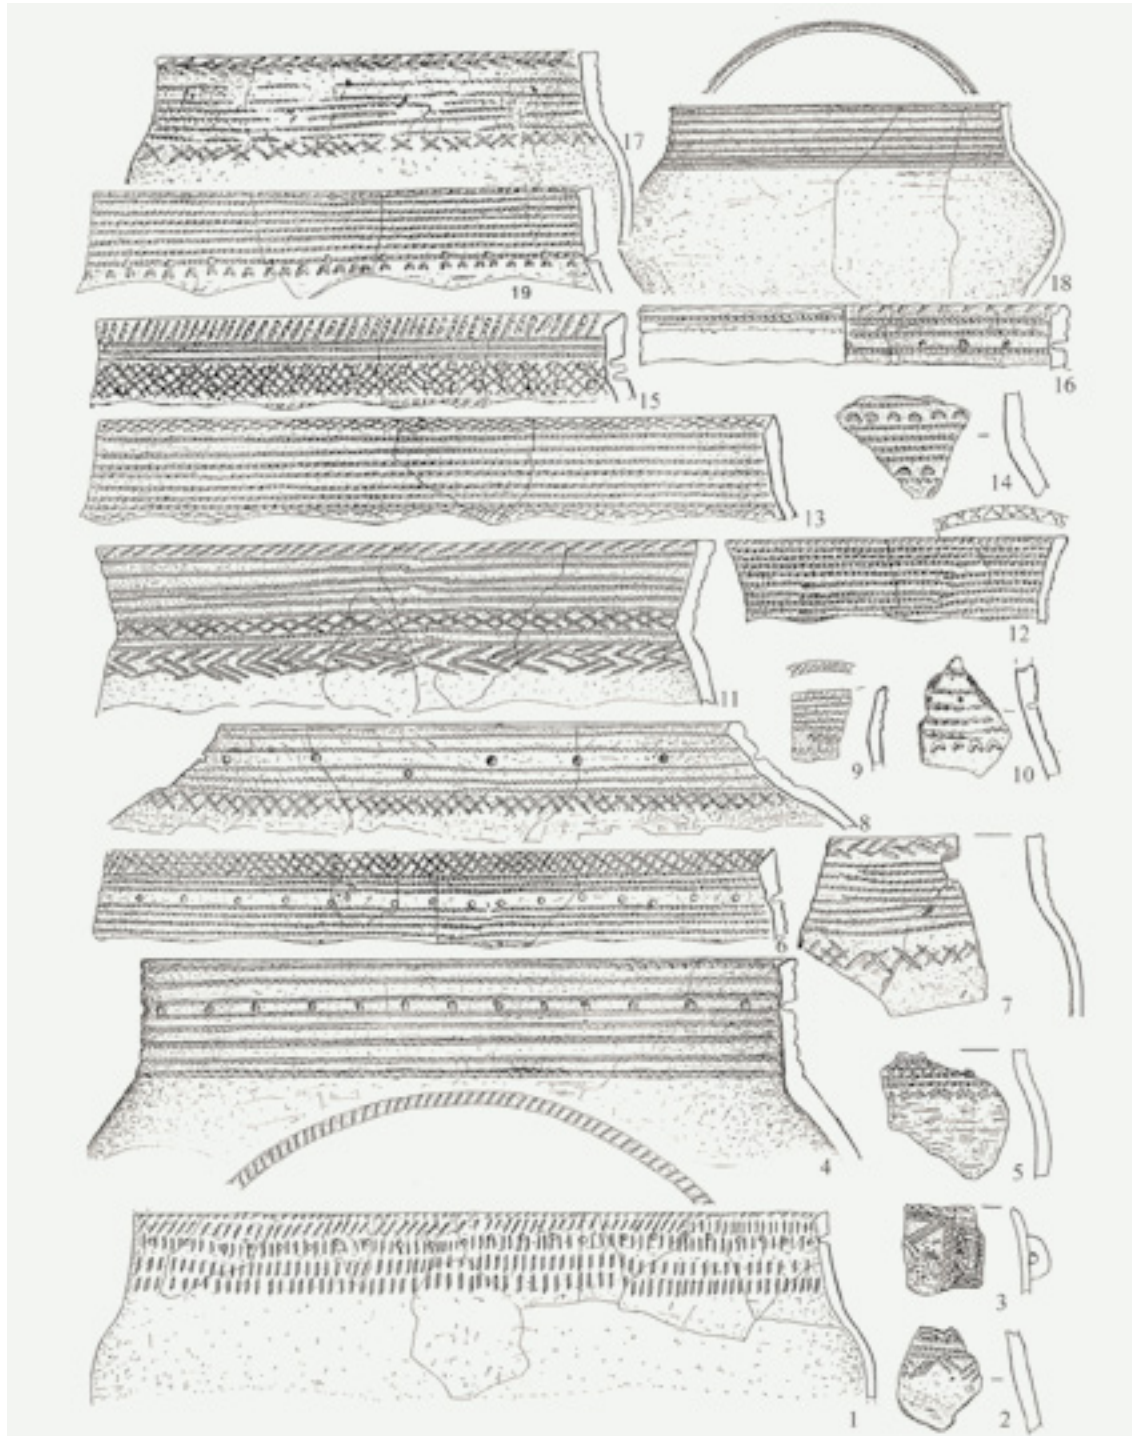 17
18
19
15
16
14
13
12
11
9
10
8
6
7
4
5
3
1
2